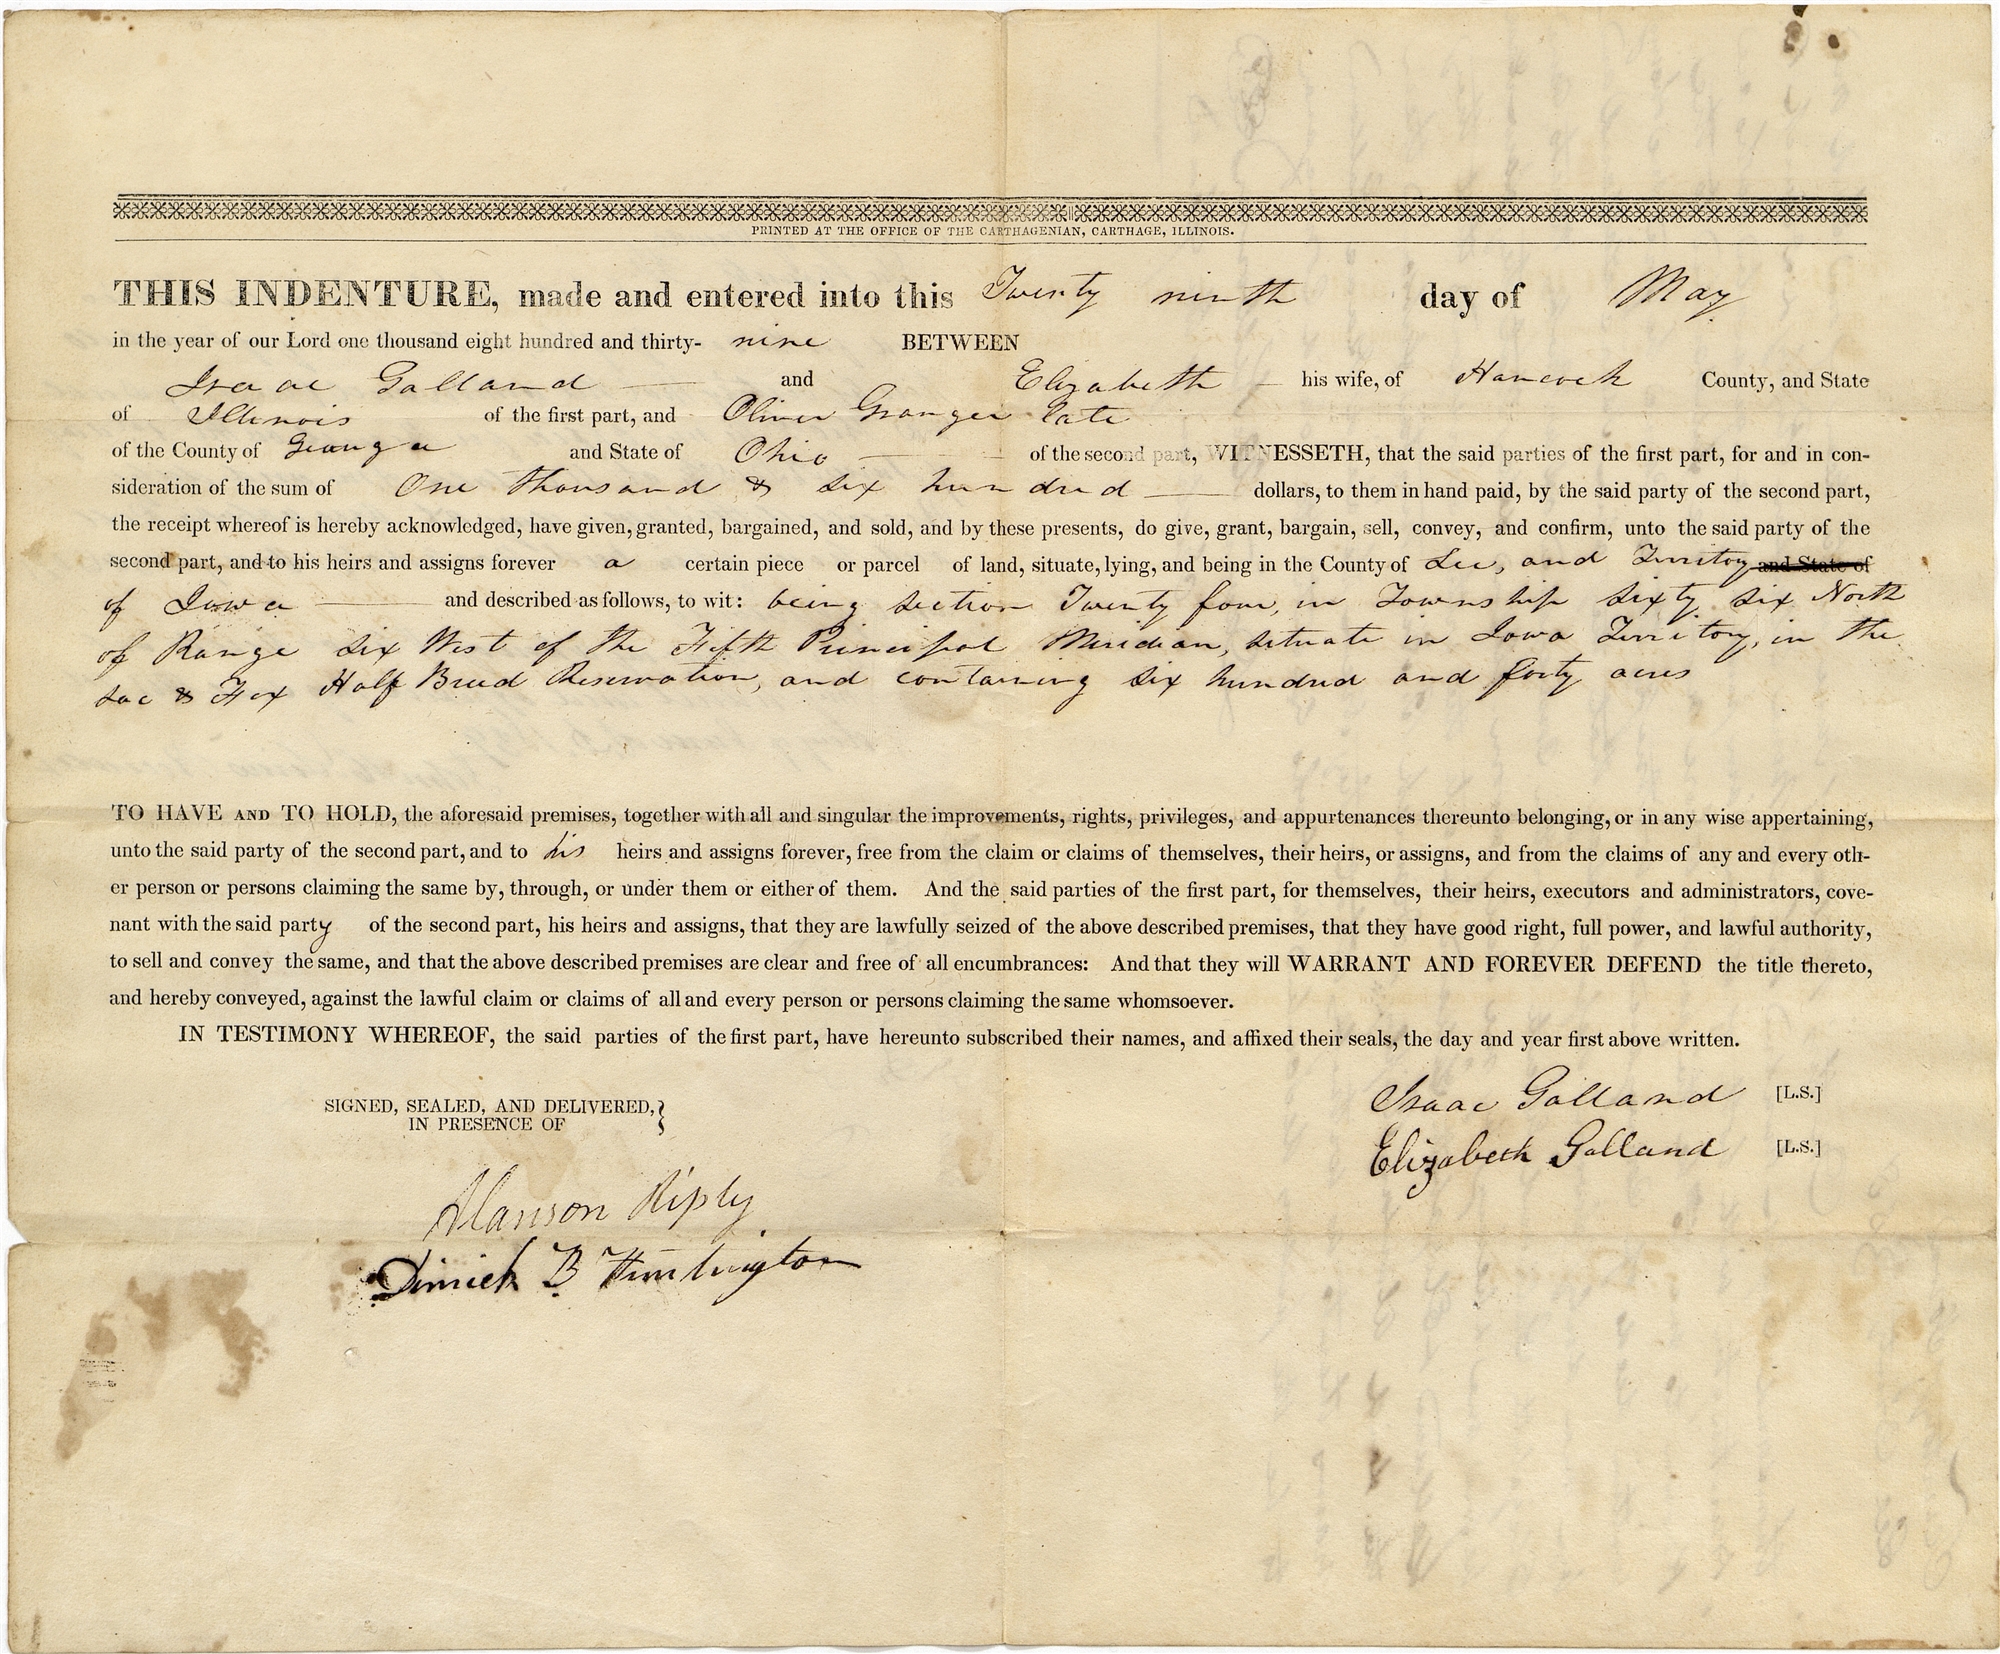 PRINTED AT THE OFFICE OF THE CARTHAGENIAN, CARTHAGE, ILLINOIS.
THIS INDENTURE, made and entered into this Twenty ninth day of May
in the year of our Lord one thousand eight hundred and thirty- nine BETWEEN
Isaac Galland and Elizabeth his wife, of Hancock County, and State
of Illinois of the first part, and Oliver Granger late
of the County of Geauga and State of Ohio of the second part, WITNESSETH, that the said parties of the first part, for and in con-
sideration of the sum of One thousand & six hundred dollars, to them in hand paid, by the said party of the second part,
the receipt whereof is hereby acknowledged, have given, granted, bargained, and sold, and by these presents, do give, grant, bargain, sell, convey, and confirm, unto the said party of the
second part, and to his heirs and assigns forever a certain piece or parcel of land, situate, lying, and being in the County of Lee, and Territory and State of
of Iowa and described as follows, to wit: being section Twenty four, in Township sixty six North
of Range six West of the Fifth Principal Meridian, situate in Iowa Territory, in the
Sac & Fox Half Breed Reservation, and containing six hundred and forty acres
TO HAVE AND TO HOLD, the aforesaid premises, together with all and singular the improvements, rights, privileges, and appurtenances thereunto belonging, or in any wise appertaining,
unto the said party of the second part, and to his heirs and assigns forever, free from the claim or claims of themselves, their heirs, or assigns, and from the claims of any and every oth-
er person or persons claiming the same by, through, or under them or either of them. And the said parties of the first part, for themselves, their heirs, executors and administrators, cove-
nant with the said party of the second part, his heirs and assigns, that they are lawfully seized of the above described premises, that they have good right, full power, and lawful authority,
to sell and convey the same, and that the above described premises are clear and free of all encumbrances: And that they will WARRANT AND FOREVER DEFEND the title thereto,
and hereby conveyed, against the lawful claim or claims of all and every person or persons claiming the same whomsoever.
IN TESTIMONY WHEREOF, the said parties of the first part, have hereunto subscribed their names, and affixed their seals, the day and year first above written.
Isaac Galland [L.S.]
SIGNED, SEALED, AND DELIVERED,
IN PRESENCE OF
Elizabeth Galland [L.S.]
Alanson Riply
Dimick B Huntington